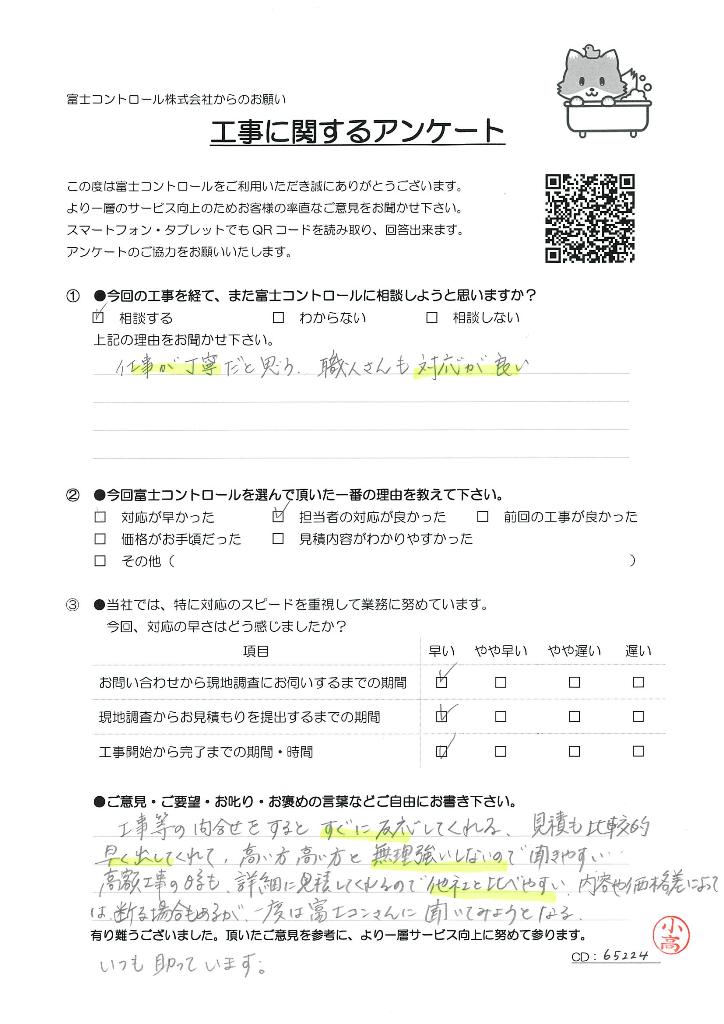 富士コントロール株式会社からのお願い
工事に関するアンケート
この度は富士コントロールをご利用いただき誠にありがとうございます。
より一層のサービス向上のためお客様の率直なご意見をお聞かせ下さい。
スマートフォン・タブレットでもQRコードを読み取り、回答出来ます。
アンケートのご協力をお願いいたします。
① ●今回の工事を経て、また富士コントロールに相談しようと思いますか？
☑ 相談する □ わからない □ 相談しない
上記の理由をお聞かせ下さい。
仕事が丁寧だと思う。職人さんも対応が良い
② ●今回富士コントロールを選んで頂いた一番の理由を教えて下さい。
□ 対応が早かった ☑ 担当者の対応が良かった □ 前回の工事が良かった
□ 価格がお手頃だった □ 見積内容がわかりやすかった
□ その他（ ）
③ ●当社では、特に対応のスピードを重視して業務に努めています。
今回、対応の早さはどう感じましたか？
項目 早い やや早い やや遅い 遅い
お問い合わせから現地調査にお伺いするまでの期間 ☑ □ □ □
現地調査からお見積もりを提出するまでの期間 ☑ □ □ □
工事開始から完了までの期間・時間 ☑ □ □ □
●ご意見・ご要望・お叱り・お褒めの言葉などご自由にお書き下さい。
工事等の問合せをするとすぐに反応してくれる、見積も比較的
早く出してくれて、高い方高い方と無理強いしないので聞きやすい…
高額工事の時も、詳細に見積してくれるので他社と比べやすい、内容や価格差によって
は、断る場合もあるが、一度は富士コンさんに聞いてみようとなる。
有り難うございました。頂いたご意見を参考に、より一層サービス向上に努めて参ります。
いつも助っています。
CD：65224
小高